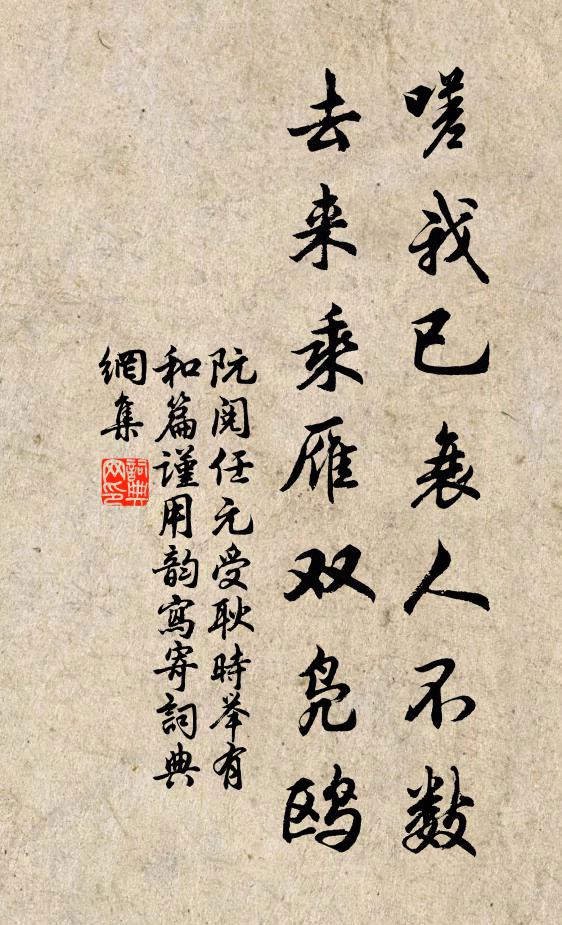 嗟我已衰人不数
去来乘雁双凫鸥
阮阅任元受耿时举有
和篇谨用韵寫寄詞典
網集
詞典
网印